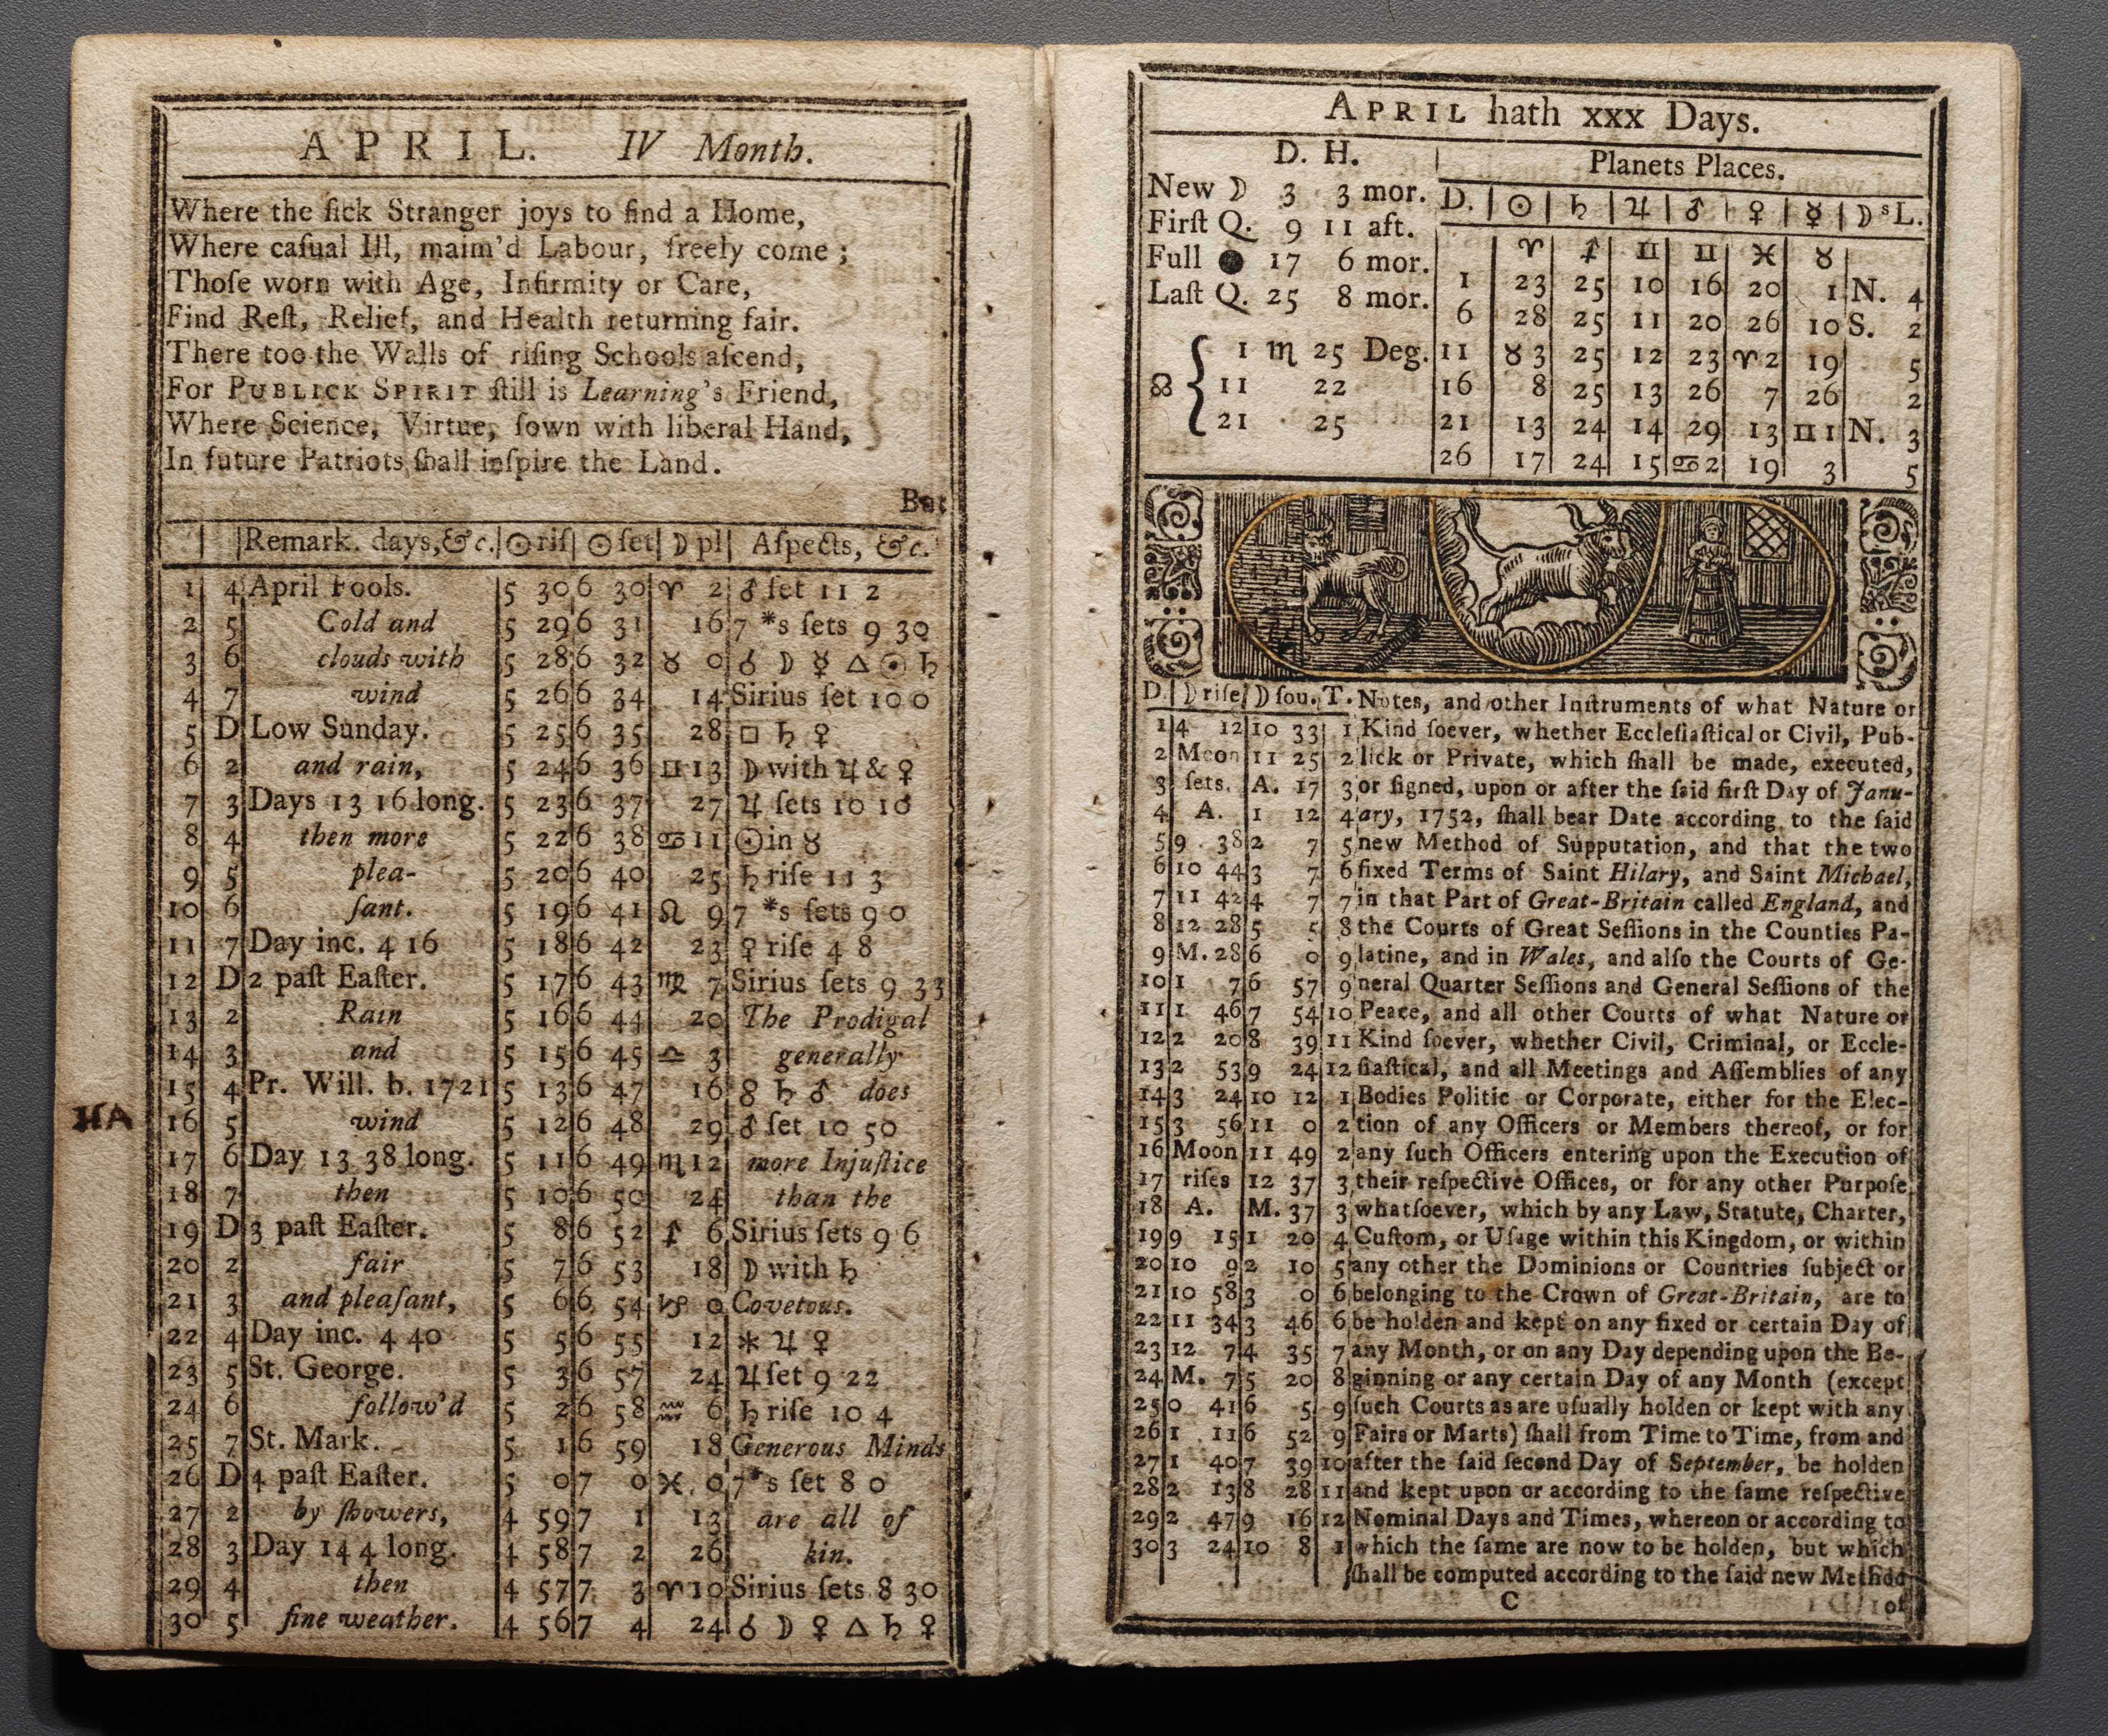 APRIL. IV Month.
Where the ſick Stranger joys to find a Home,
Where caſual Ill, maim'd Labour, freely come;
Thoſe worn with Age, Infirmity or Care,
Find Reſt, Relief, and Health returning fair.
There too the Walls of riſing Schools aſcend,
For PUBLICK SPIRIT ſtill is Learning's Friend,
Where Science, Virtue, ſown with liberal Hand,
In future Patriots ſhall inſpire the Land.
But
Remark. days, &c. ☉ riſ ☉ ſet ☽ pl Aſpects, &c.
1 4 April Fools. 5 30 6 30 ♈ 2 ♂ ſet 11 2
2 5 Cold and 5 29 6 31 16 7 *s ſets 9 30
3 6 clouds with 5 28 6 32 ♉ 0 ☌ ☽ ☿ △ ☉ ♄
4 7 wind 5 26 6 34 14 Sirius ſet 10 0
5 D Low Sunday. 5 25 6 35 28 □ ♄ ♀
6 2 and rain, 5 24 6 36 ♊ 13 ☽ with ♃ & ♀
7 3 Days 13 16 long. 5 23 6 37 27 ♃ ſets 10 10
8 4 then more 5 22 6 38 ♋ 11 ☉ in ♉
9 5 plea- 5 20 6 40 25 ♄ riſe 11 3
10 6 ſant. 5 19 6 41 ♌ 9 7 *s ſets 9 0
11 7 Day inc. 4 16 5 18 6 42 23 ♀ riſe 4 8
12 D 2 paſt Eaſter. 5 17 6 43 ♍ 7 Sirius ſets 9 33
13 2 Rain 5 16 6 44 20 The Prodigal
14 3 and 5 15 6 45 ♎ 3 generally
15 4 Pr. Will. b. 1721 5 13 6 47 16 ☍ ♄ ♂ does
16 5 wind 5 12 6 48 29 ♂ ſet 10 50
17 6 Day 13 38 long. 5 11 6 49 ♏ 12 more Injuſtice
18 7 then 5 10 6 50 24 than the
19 D 3 paſt Eaſter. 5 8 6 52 ♐ 6 Sirius ſets 9 6
20 2 fair 5 7 6 53 18 ☽ with ♄
21 3 and pleaſant, 5 6 6 54 ♑ 0 Covetous.
22 4 Day inc. 4 40 5 5 6 55 12 ✱ ♃ ♀
23 5 St. George. 5 3 6 57 24 ♃ ſet 9 22
24 6 follow'd 5 2 6 58 ♒ 6 ♄ riſe 10 4
25 7 St. Mark. 5 1 6 59 18 Generous Minds
26 D 4 paſt Eaſter. 5 0 7 0 ♓ 0 7 *s ſet 8 0
27 2 by ſhowers, 4 59 7 1 13 are all of
28 3 Day 14 4 long. 4 58 7 2 26 kin.
29 4 then 4 57 7 3 ♈ 10 Sirius ſets 8 30
30 5 fine weather. 4 56 7 4 24 ☌ ☽ ♀ △ ♄ ♀
APRIL hath xxx Days.
D. H.
New ☽ 3 3 mor.
Firſt Q. 9 11 aft.
Full ● 17 6 mor.
Laſt Q. 25 8 mor.
☊ { 1 ♏ 25 Deg.
11 22
21 25
Planets Places.
D. ☉ ♄ ♃ ♂ ♀ ☿ ☽s L.
♈ ♐ ♊ ♊ ♓ ♉
1 23 25 10 16 20 1 N. 4
6 28 25 11 20 26 10 S. 2
11 ♉ 3 25 12 23 ♈ 2 19 5
16 8 25 13 26 7 26 2
21 13 24 14 29 13 ♊ 1 N. 3
26 17 24 15 ♋ 2 19 3 5
D. ☽ riſe ☽ ſou. T. Notes, and other Inſtruments of what Nature or
1 4 12 10 33 1 Kind ſoever, whether Eccleſiaſtical or Civil, Pub-
2 Moon 11 25 2 lick or Private, which ſhall be made, executed,
3 ſets. A. 17 3 or ſigned, upon or after the ſaid firſt Day of Janu-
4 A. 1 12 4 ary, 1752, ſhall bear Date according to the ſaid
5 9 38 2 7 5 new Method of Supputation, and that the two
6 10 44 3 7 6 fixed Terms of Saint Hilary, and Saint Michael,
7 11 42 4 7 7 in that Part of Great-Britain called England, and
8 12 28 5 5 8 the Courts of Great Seſſions in the Counties Pa-
9 M. 28 6 0 9 latine, and in Wales, and alſo the Courts of Ge-
10 1 7 6 57 9 neral Quarter Seſſions and General Seſſions of the
11 1 46 7 54 10 Peace, and all other Courts of what Nature or
12 2 20 8 39 11 Kind ſoever, whether Civil, Criminal, or Eccle-
13 2 53 9 24 12 ſiaſtical, and all Meetings and Aſſemblies of any
14 3 24 10 12 1 Bodies Politic or Corporate, either for the Elec-
15 3 56 11 0 2 tion of any Officers or Members thereof, or for
16 Moon 11 49 2 any ſuch Officers entering upon the Execution of
17 riſes 12 37 3 their reſpective Offices, or for any other Purpoſe
18 A. M. 37 3 whatſoever, which by any Law, Statute, Charter,
19 9 15 1 20 4 Cuſtom, or Uſage within this Kingdom, or within
20 10 9 2 10 5 any other the Dominions or Countries ſubject or
21 10 58 3 0 6 belonging to the Crown of Great-Britain, are to
22 11 34 3 46 6 be holden and kept on any fixed or certain Day of
23 12 7 4 35 7 any Month, or on any Day depending upon the Be-
24 M. 7 5 20 8 ginning or any certain Day of any Month (except
25 0 41 6 5 9 ſuch Courts as are uſually holden or kept with any
26 1 11 6 52 9 Fairs or Marts) ſhall from Time to Time, from and
27 1 40 7 39 10 after the ſaid ſecond Day of September, be holden
28 2 13 8 28 11 and kept upon or according to the ſame reſpective
29 2 47 9 16 12 Nominal Days and Times, whereon or according to
30 3 24 10 8 1 which the ſame are now to be holden, but which
ſhall be computed according to the ſaid new Method
C of